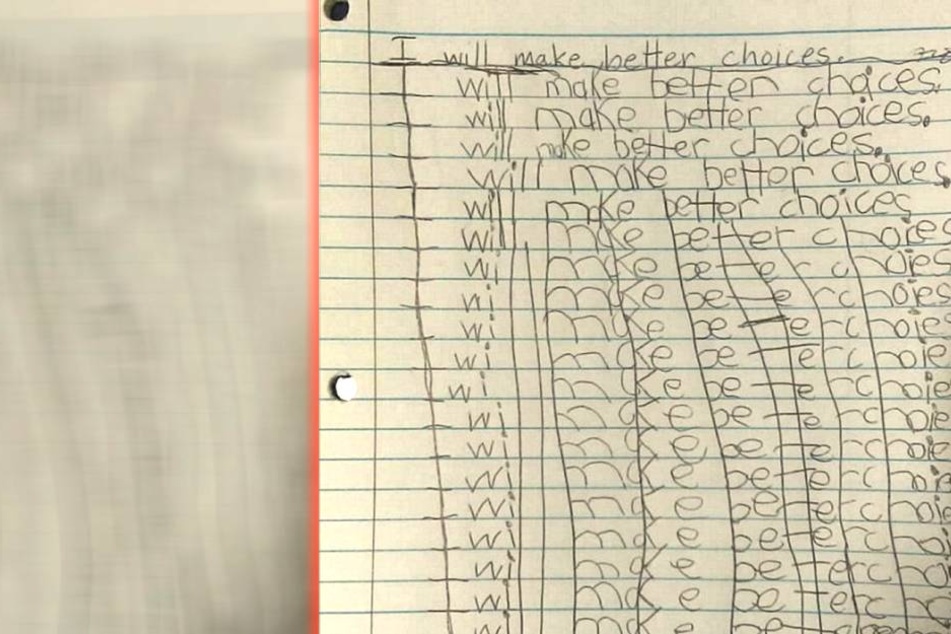 I will make better choices.
I will make better choices.
I will make better choices.
I will make better choices.
I will make better choices
I will make better choices
I will make better choices
I will make better choies
I will make better choies
I will make better choies
I will make better choie
I will make better choie
I will make better choie
I will make better choie
I will make better choie
I will make better choi
I will make better choi
I will make better choi
I will make better cho
I will make better